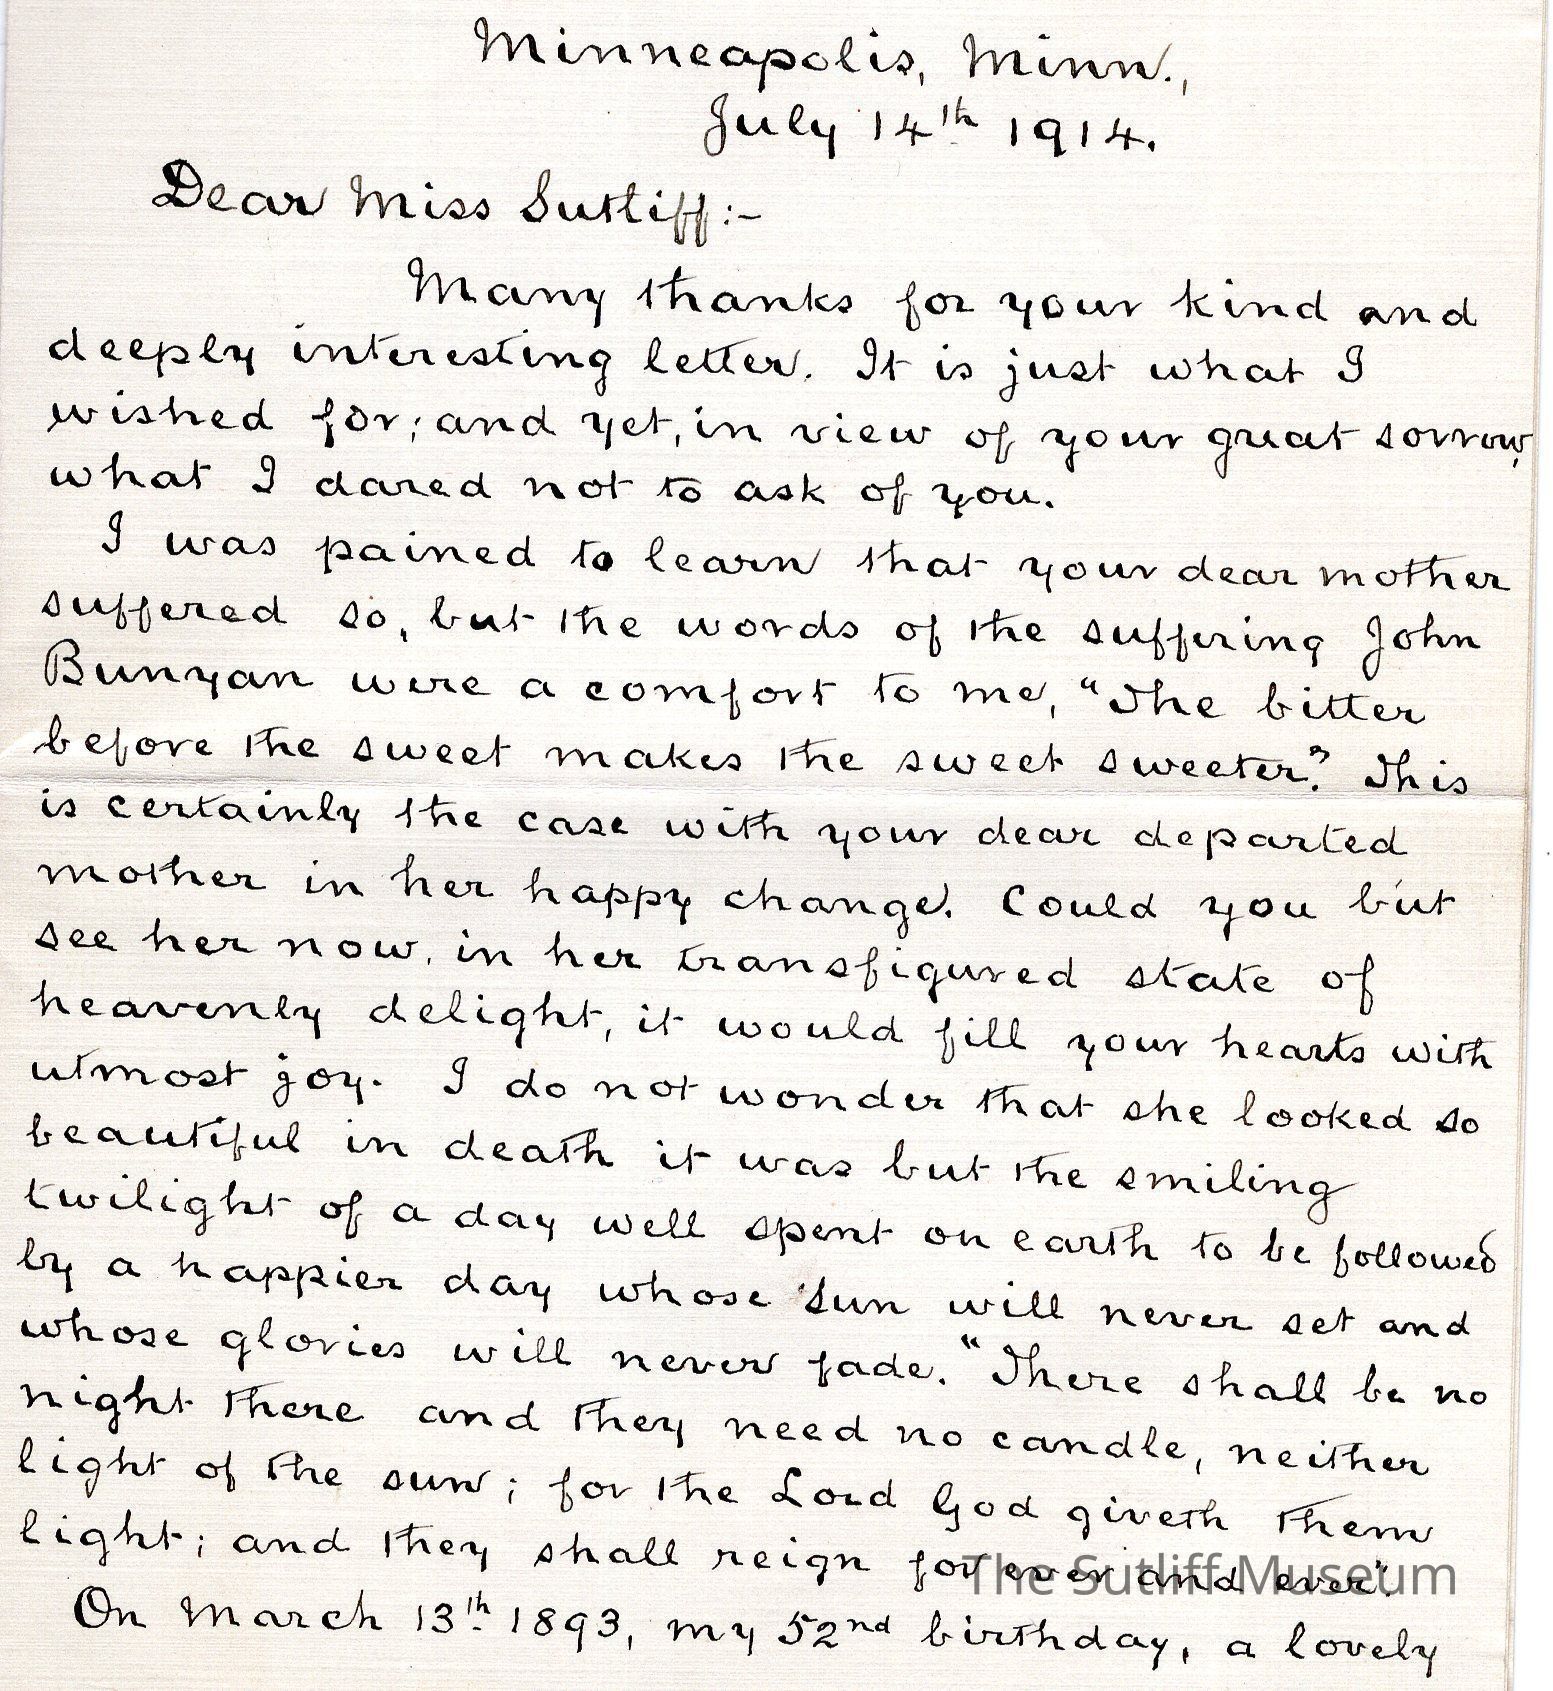 Minneapolis, Minn.,
July 14th 1914.
Dear Miss Sutliff:-
Many thanks for your kind and
deeply interesting letter. It is just what I
wished for; and yet, in view of your great sorrow,
what I dared not to ask of you.
I was pained to learn that your dear mother
suffered so, but the words of the suffering John
Bunyan were a comfort to me, "The bitter
before the sweet makes the sweet sweeter." This
is certainly the case with your dear departed
mother in her happy change. Could you but
see her now, in her transfigured state of
heavenly delight, it would fill your hearts with
utmost joy. I do not wonder that she looked so
beautiful in death it was but the smiling
twilight of a day well spent on earth to be followed
by a happier day whose sun will never set and
whose glories will never fade. "There shall be no
night there and they need no candle, neither
light of the sun; for the Lord God giveth them
light; and they shall reign for ever and ever".
The Sutliff Museum
On March 13th 1893, my 52nd birthday, a lovely